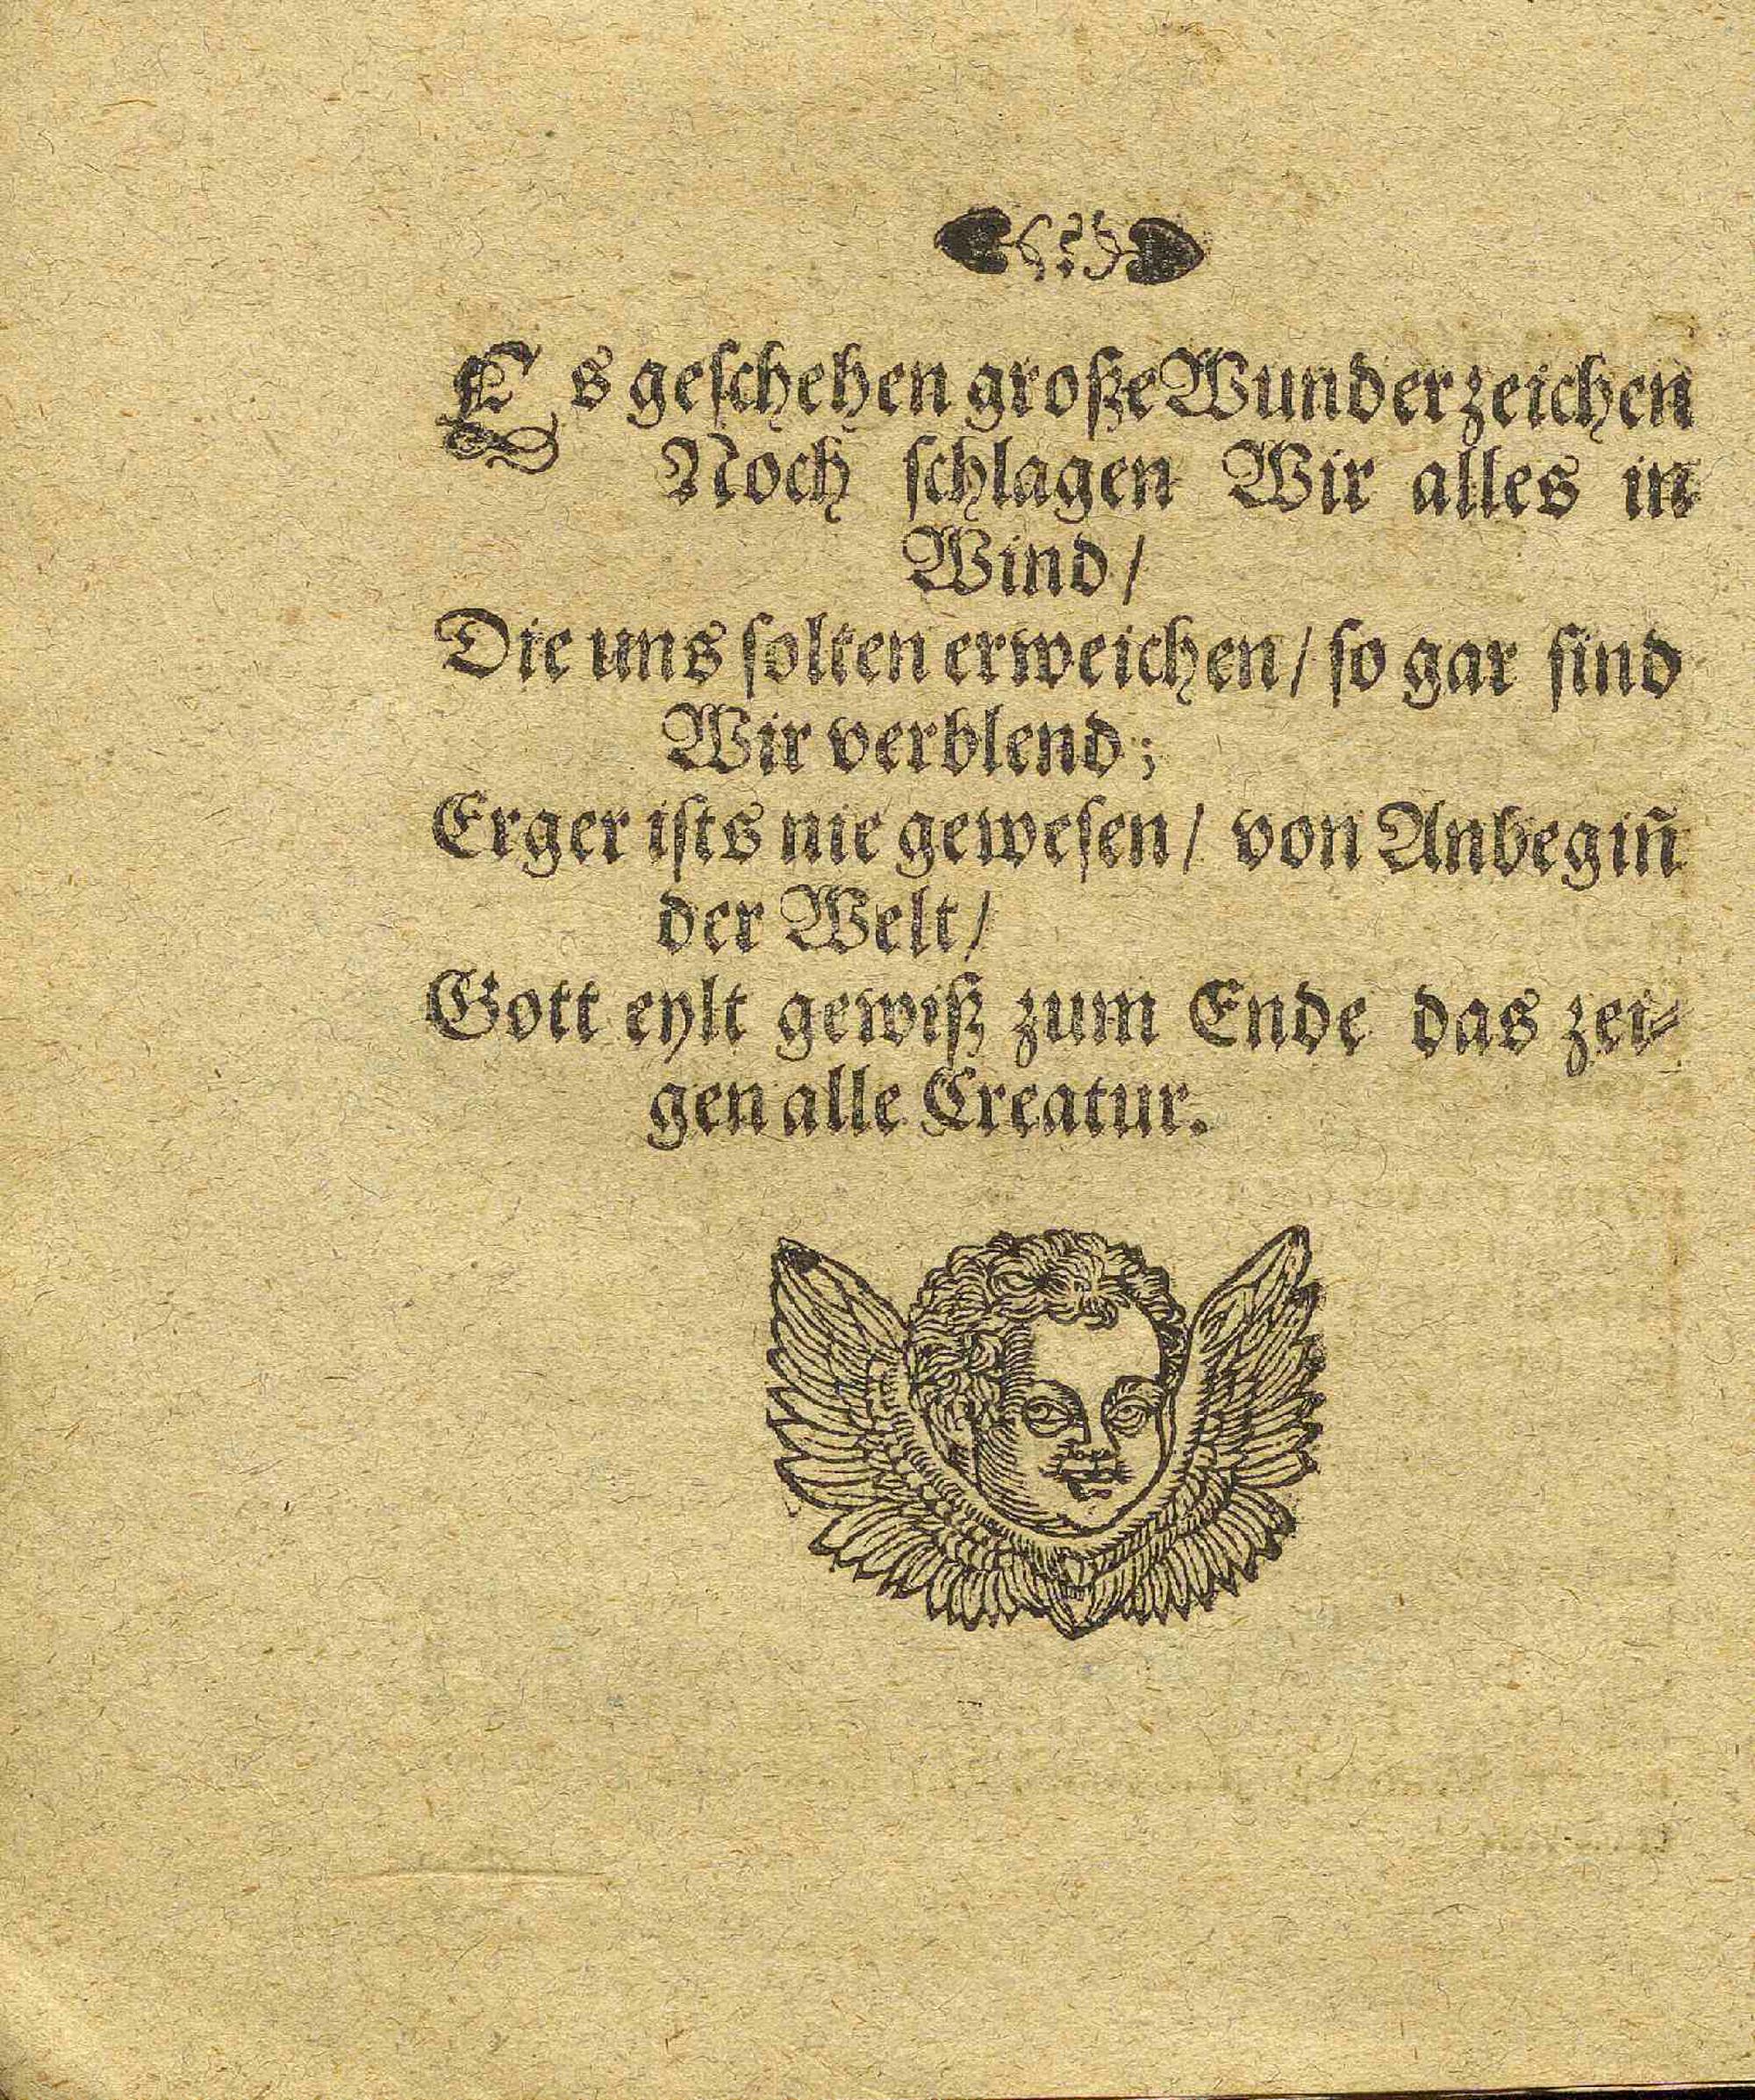 Es geſchehen große Wunderzeichen
Noch ſchlagen Wir alles in
Wind/
Die uns ſolten erweichen/ ſo gar ſind
Wir verblend;
Erger iſts nie geweſen/ von Anbegin̄
der Welt/
Gott eylt gewiß zum Ende das zei⸗
gen alle Creatur.